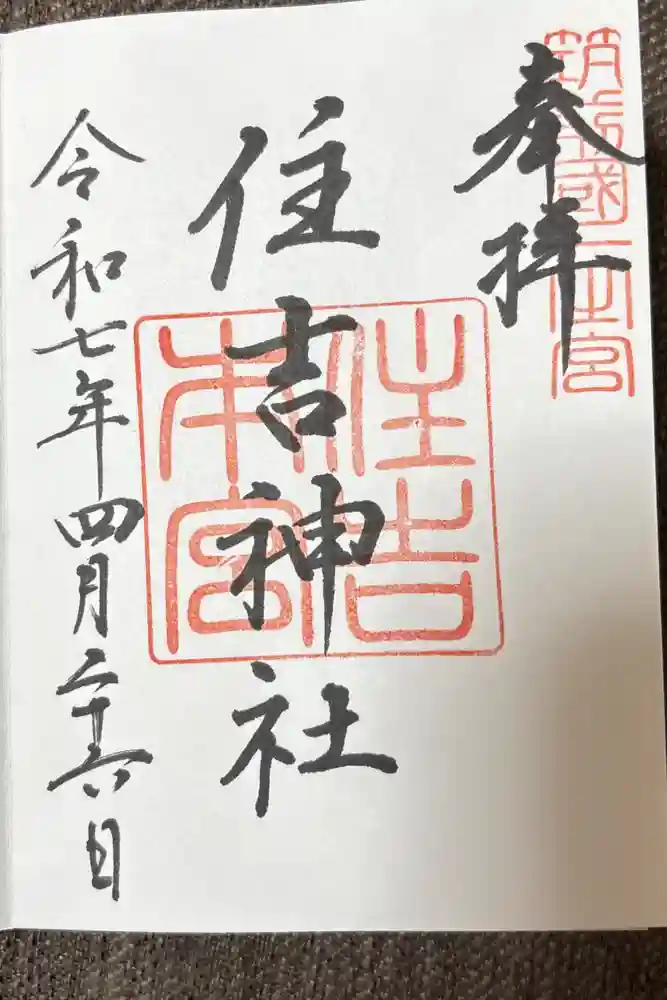 奉拝
筑前國一之宮
住吉神社
住吉本宮
令和七年四月二十六日